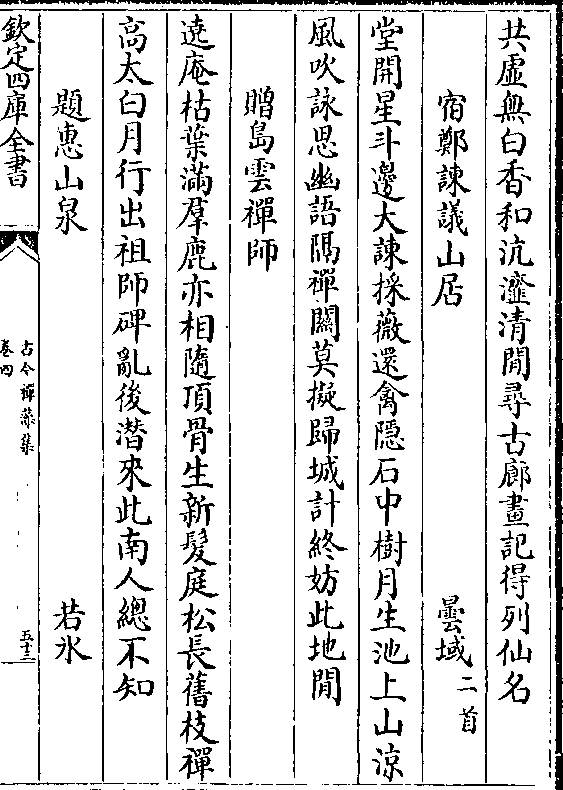 共虛無白香和沆瀣清閒尋古廊畫記得列仙名
宿鄭諫議山居　曇域二首
堂開星斗邊大諫採薇還禽隠石中樹月生池上山涼
風吹詠思幽語隔禪關莫擬歸城計終妨此地閒
贈島雲禪師
遶庵枯葉滿羣鹿亦相隨頂骨生新髮庭松長舊枝禪
高太白月行出祖師碑亂後潛來此南人總不知
題惠山泉　若氷
欽定四庫全書
古今禪藻集
卷四
五十三